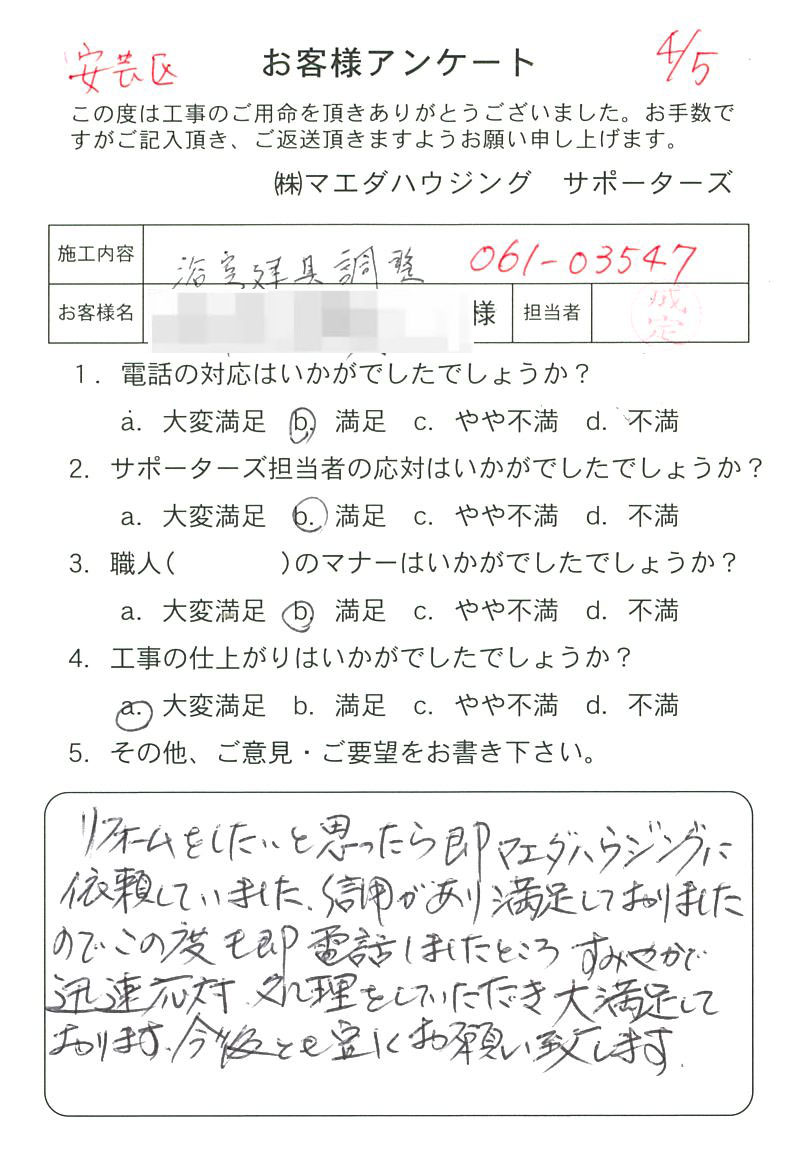 安芸区 お客様アンケート 4/5
この度は工事のご用命を頂きありがとうございました。お手数で
すがご記入頂き、ご返送頂きますようお願い申し上げます。
㈱マエダハウジング サポーターズ
施工内容 浴室建具調整 061-03547
お客様名 様 担当者
1. 電話の対応はいかがでしたでしょうか？
a. 大変満足 b. 満足 c. やや不満 d. 不満
2. サポーターズ担当者の応対はいかがでしたでしょうか？
a. 大変満足 b. 満足 c. やや不満 d. 不満
3. 職人( )のマナーはいかがでしたでしょうか？
a. 大変満足 b. 満足 c. やや不満 d. 不満
4. 工事の仕上がりはいかがでしたでしょうか？
a. 大変満足 b. 満足 c. やや不満 d. 不満
5. その他、ご意見・ご要望をお書き下さい。
リフォームをしたいと思ったら即マエダハウジングに
依頼していました、信用があり満足しておりました
のでこの度も即電話しましたところすみやかで
迅速応対、処理をしていただき大満足して
おります、今後とも宜しくお願い致します.